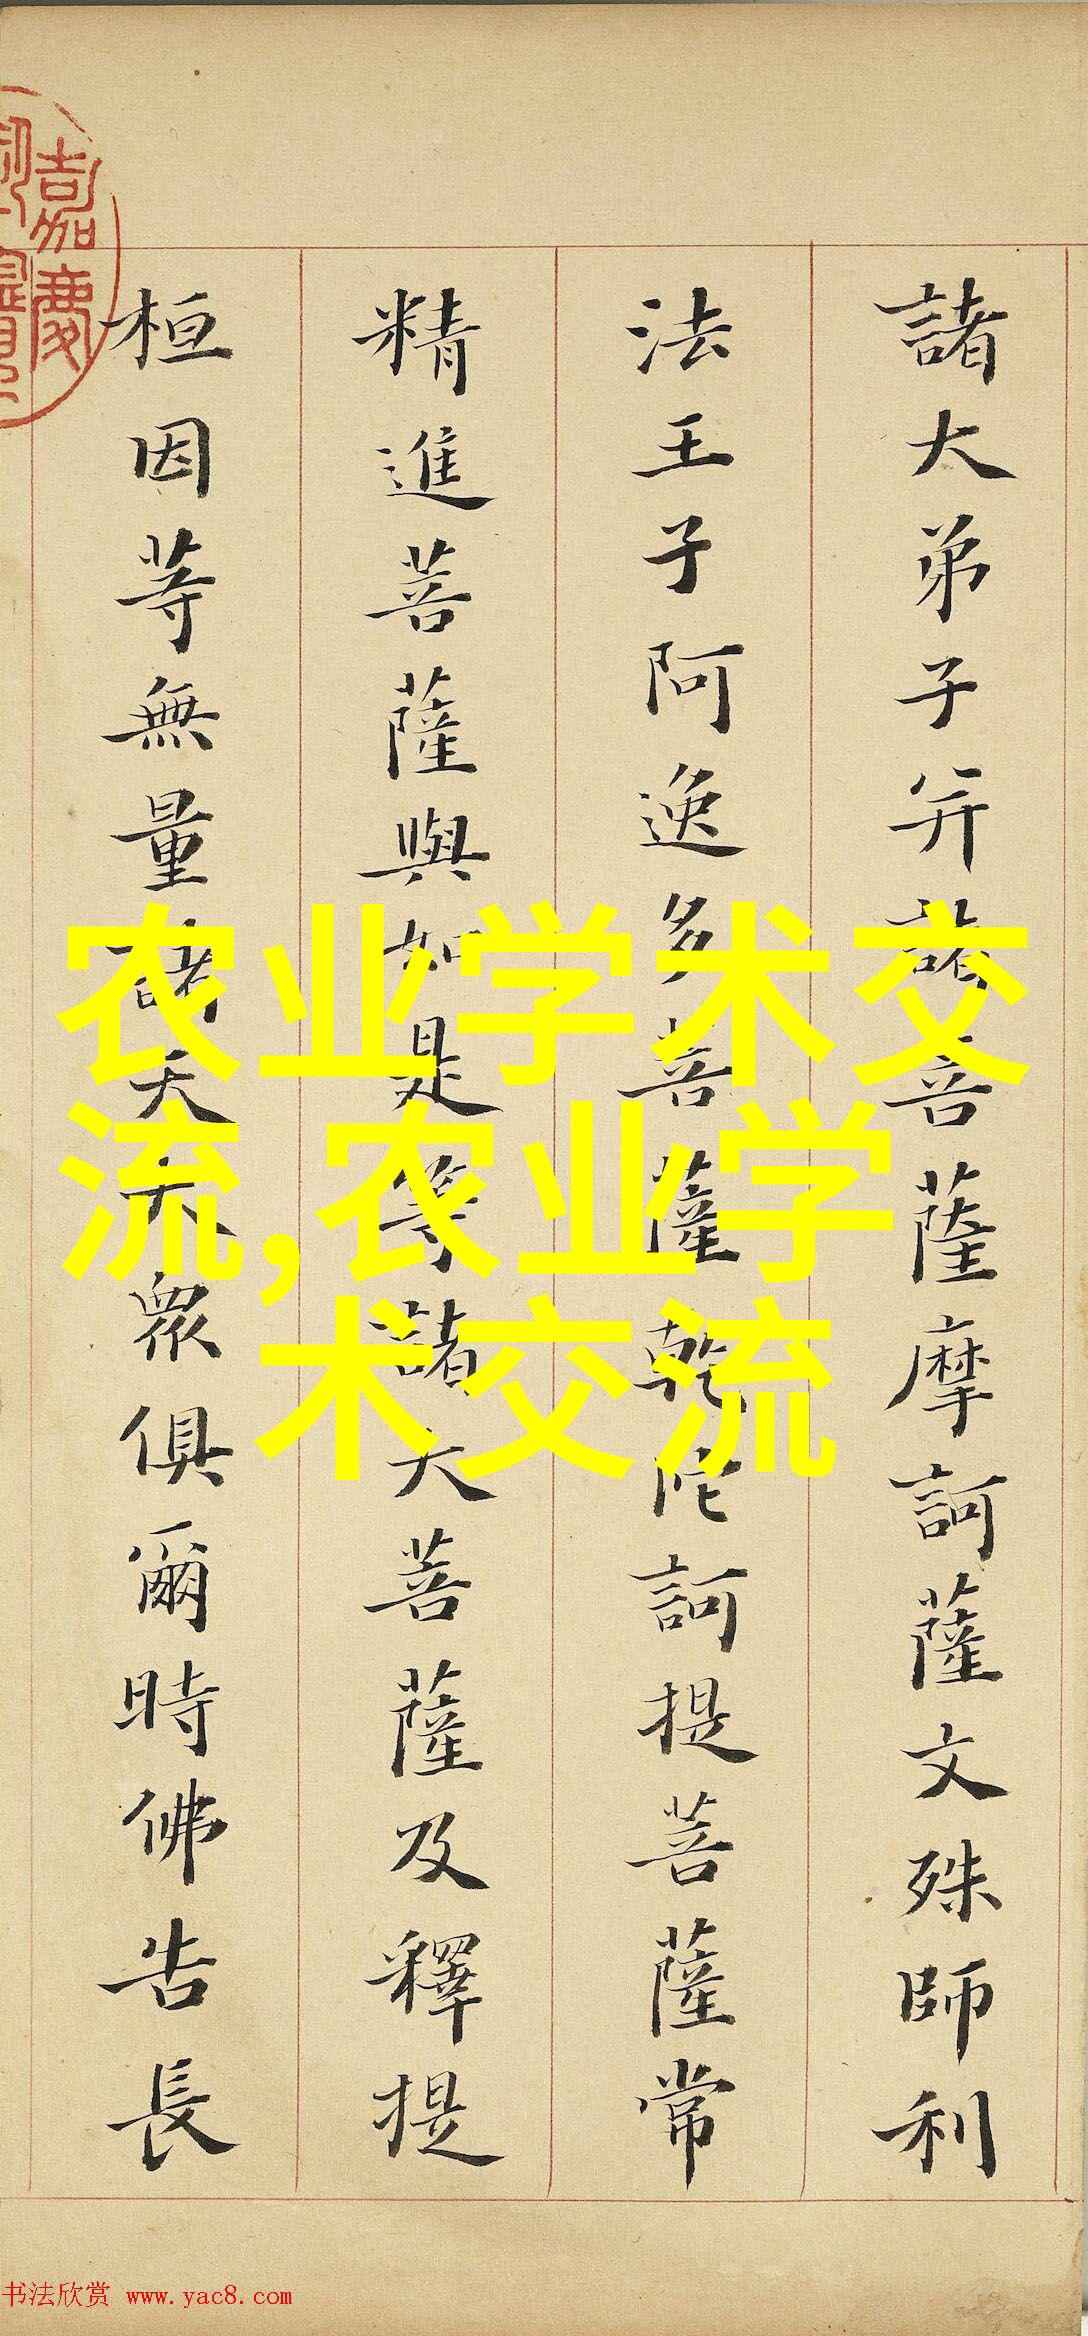 諸大弟子并諸菩薩摩訶薩文殊師利
法王子阿逸多菩薩乾陀訶提菩薩常
精進菩薩與如是等諸大菩薩及釋提
桓因等無量諸天大衆俱爾時佛告長
嘉慶
农业学术交
流,农业学
术交流
书法欣赏 www.yac8.com